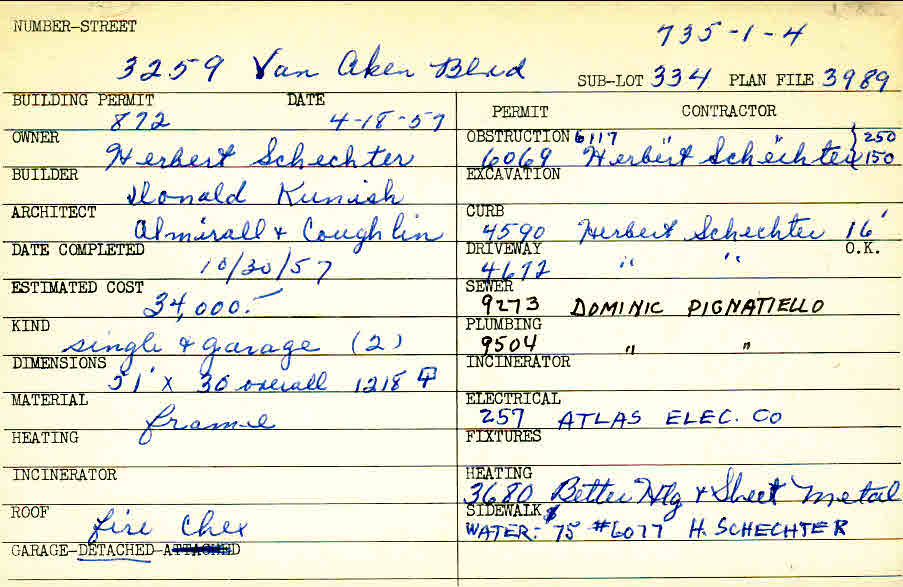 NUMBER-STREET
735-1-4
3259 Van Aken Blvd
SUB-LOT 334 PLAN FILE 3989
BUILDING PERMIT DATE
872 4-18-57
OWNER
Herbert Schechter
BUILDER
Donald Kumish
ARCHITECT
Almirall & Coughlin
DATE COMPLETED
10/30/57
ESTIMATED COST
34,000.-
KIND
single & garage (2)
DIMENSIONS
51' x 30 overall 1218
MATERIAL
frame
HEATING
INCINERATOR
ROOF
fire chex
GARAGE-DETACHED-ATTACHED
PERMIT CONTRACTOR
OBSTRUCTION 6117 " " 250
6069 Herbert Schechter 150
EXCAVATION
CURB
4590 Herbert Schechter 16'
DRIVEWAY O.K.
4672 " "
SEWER
9273 DOMINIC PIGNATIELLO
PLUMBING
9504 " "
INCINERATOR
ELECTRICAL
257 ATLAS ELEC. CO
FIXTURES
HEATING
3680 Better Htg & Sheet Metal
SIDEWALK
WATER: 75 #6077 H. SCHECHTER